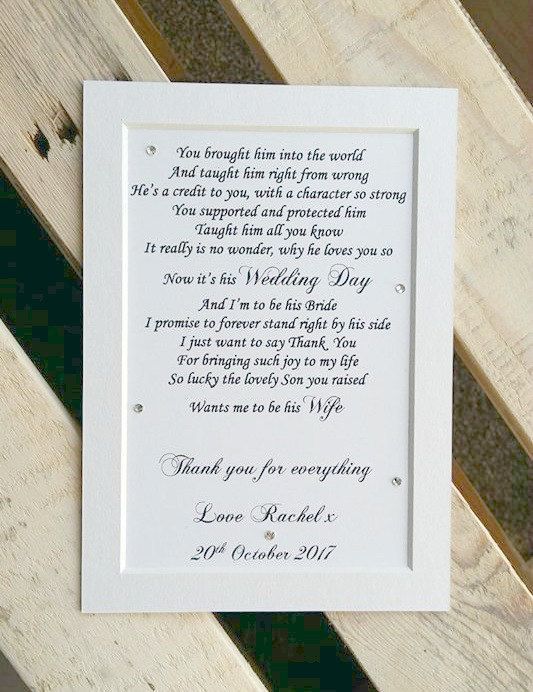 You brought him into the world
And taught him right from wrong
He's a credit to you, with a character so strong
You supported and protected him
Taught him all you know
It really is no wonder, why he loves you so
Now it's his Wedding Day
And I'm to be his Bride
I promise to forever stand right by his side
I just want to say Thank You
For bringing such joy to my life
So lucky the lovely Son you raised
Wants me to be his Wife
Thank you for everything
Love Rachel x
20th October 2017